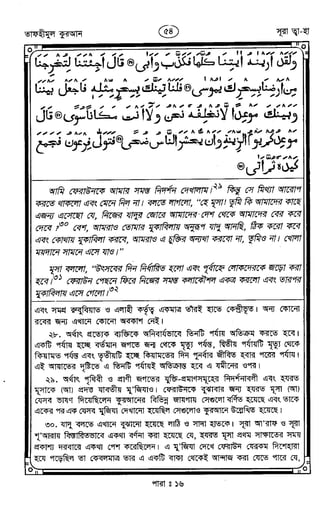 তাফহীমুল কুরআন
৫৪
সূরা ত্বা-হা
وَلَقَدْ أَرَيْنٰهُ اٰيٰتِنَا كُلَّهَا فَكَذَّبَ وَاَبٰى ۞ قَالَ اَجِئْتَنَا لِتُخْرِجَنَا
مِنْ اَرْضِنَا بِسِحْرِكَ يٰمُوْسٰى ۞ فَلَنَاْتِيَنَّكَ بِسِحْرٍ مِّثْلِهٖ فَاجْعَلْ بَيْنَنَا
وَبَيْنَكَ مَوْعِدًا لَّا نُخْلِفُهٗ نَحْنُ وَلَآ اَنْتَ مَكَانًا سُوًى ۞ قَالَ
مَوْعِدُكُمْ يَوْمُ الزِّيْنَةِ وَاَنْ يُّحْشَرَ النَّاسُ ضُحًى ۞ فَتَوَلّٰى فِرْعَوْنُ فَجَمَعَ
كَيْدَهٗ ثُمَّ اَتٰى ۞
আমি ফেরাউনকে আমার সমস্ত নিদর্শন দেখালাম।২৯ কিন্তু সে মিথ্যা আরোপ
করতে থাকলো এবং মেনে নিল না। বলতে লাগলো, "হে মূসা! তুমি কি আমাদের কাছে
এজন্য এসেছো যে, নিজের যাদুর জোরে আমাদের দেশ থেকে আমাদের বের করে
দেবে?৩০ বেশ, আমরাও তোমার মুকাবিলায় অনুরূপ যাদু আনছি, ঠিক করো কবে
এবং কোথায় মুকাবিলা করবে, আমরাও এ চুক্তির অন্যথা করবো না, তুমিও না। খোলা
ময়দানে সামনে এসে যাও।"
মূসা বললো, "উৎসবের দিন নির্ধারিত হলো এবং পূর্বাহ্নে লোকদেরকে জড়ো করা
হবে।৩১ ফেরাউন পেছনে ফিরে নিজের সমস্ত কলাকৌশল একত্র করলো এবং তারপর
মুকাবিলায় এসে গেলো।৩২
এবং সমগ্র রুবুবিয়াত ও এলাহী কর্তৃত্ব একমাত্র তাঁরই হাতে কেন্দ্রীভূত। অন্য কোনো
রবের জন্য এখানে কোনো অবকাশ নেই।
২৮. অর্থাৎ প্রত্যেক ব্যক্তিকে অনিবার্যভাবে তিনটি পর্যায় অতিক্রম করতে হবে।
একটি পর্যায় হচ্ছে বর্তমান জগতে জন্ম থেকে মৃত্যু পর্যন্ত, দ্বিতীয় পর্যায়টি মৃত্যু থেকে
কিয়ামত পর্যন্ত এবং তৃতীয়টি হচ্ছে কিয়ামতের দিন পুনর্বার জীবিত হবার পরের পর্যায়।
এই আয়াতের দৃষ্টিতে এ তিনটি পর্যায়ই অতিক্রান্ত হবে এ যমীনের ওপর।
২৯. অর্থাৎ পৃথিবী ও প্রাণী জগতের যুক্তি-প্রমাণসমূহের নিদর্শনাবলী এবং হযরত
মূসাকে (আ) প্রদত্ত যাবতীয় মু'জিযাও। ফেরাউনকে বুঝাবার জন্য হযরত মূসা (আ)
যেসব ভাষণ দিয়েছিলেন কুরআনের বিভিন্ন জায়গায় সেগুলো বর্ণিত হয়েছে এবং তাকে
একের পর এক যেসব মুজিযা দেখানো হয়েছিল সেগুলোও কুরআনে উল্লেখিত হয়েছে।
৩০. যাদু বলতে এখানে বুঝানো হয়েছে লাঠি ও সাদা হাতকে। সূরা আ'রাফ ও সূরা
শূ'আরায় বিস্তারিতভাবে একথা বর্ণনা করা হয়েছে যে, হযরত মূসা প্রথম সাক্ষাতের সময়
প্রকাশ্য দরবারে একথা পেশ করেছিলেন। এ মু'জিযা দেখে ফেরাউন যেরকম দিশেহারা
হয়ে পড়েছিল তা কেবলমাত্র তার এ একটি বাক্য থেকেই আন্দাজ করা যেতে পারে যে,
পারা : ১৬